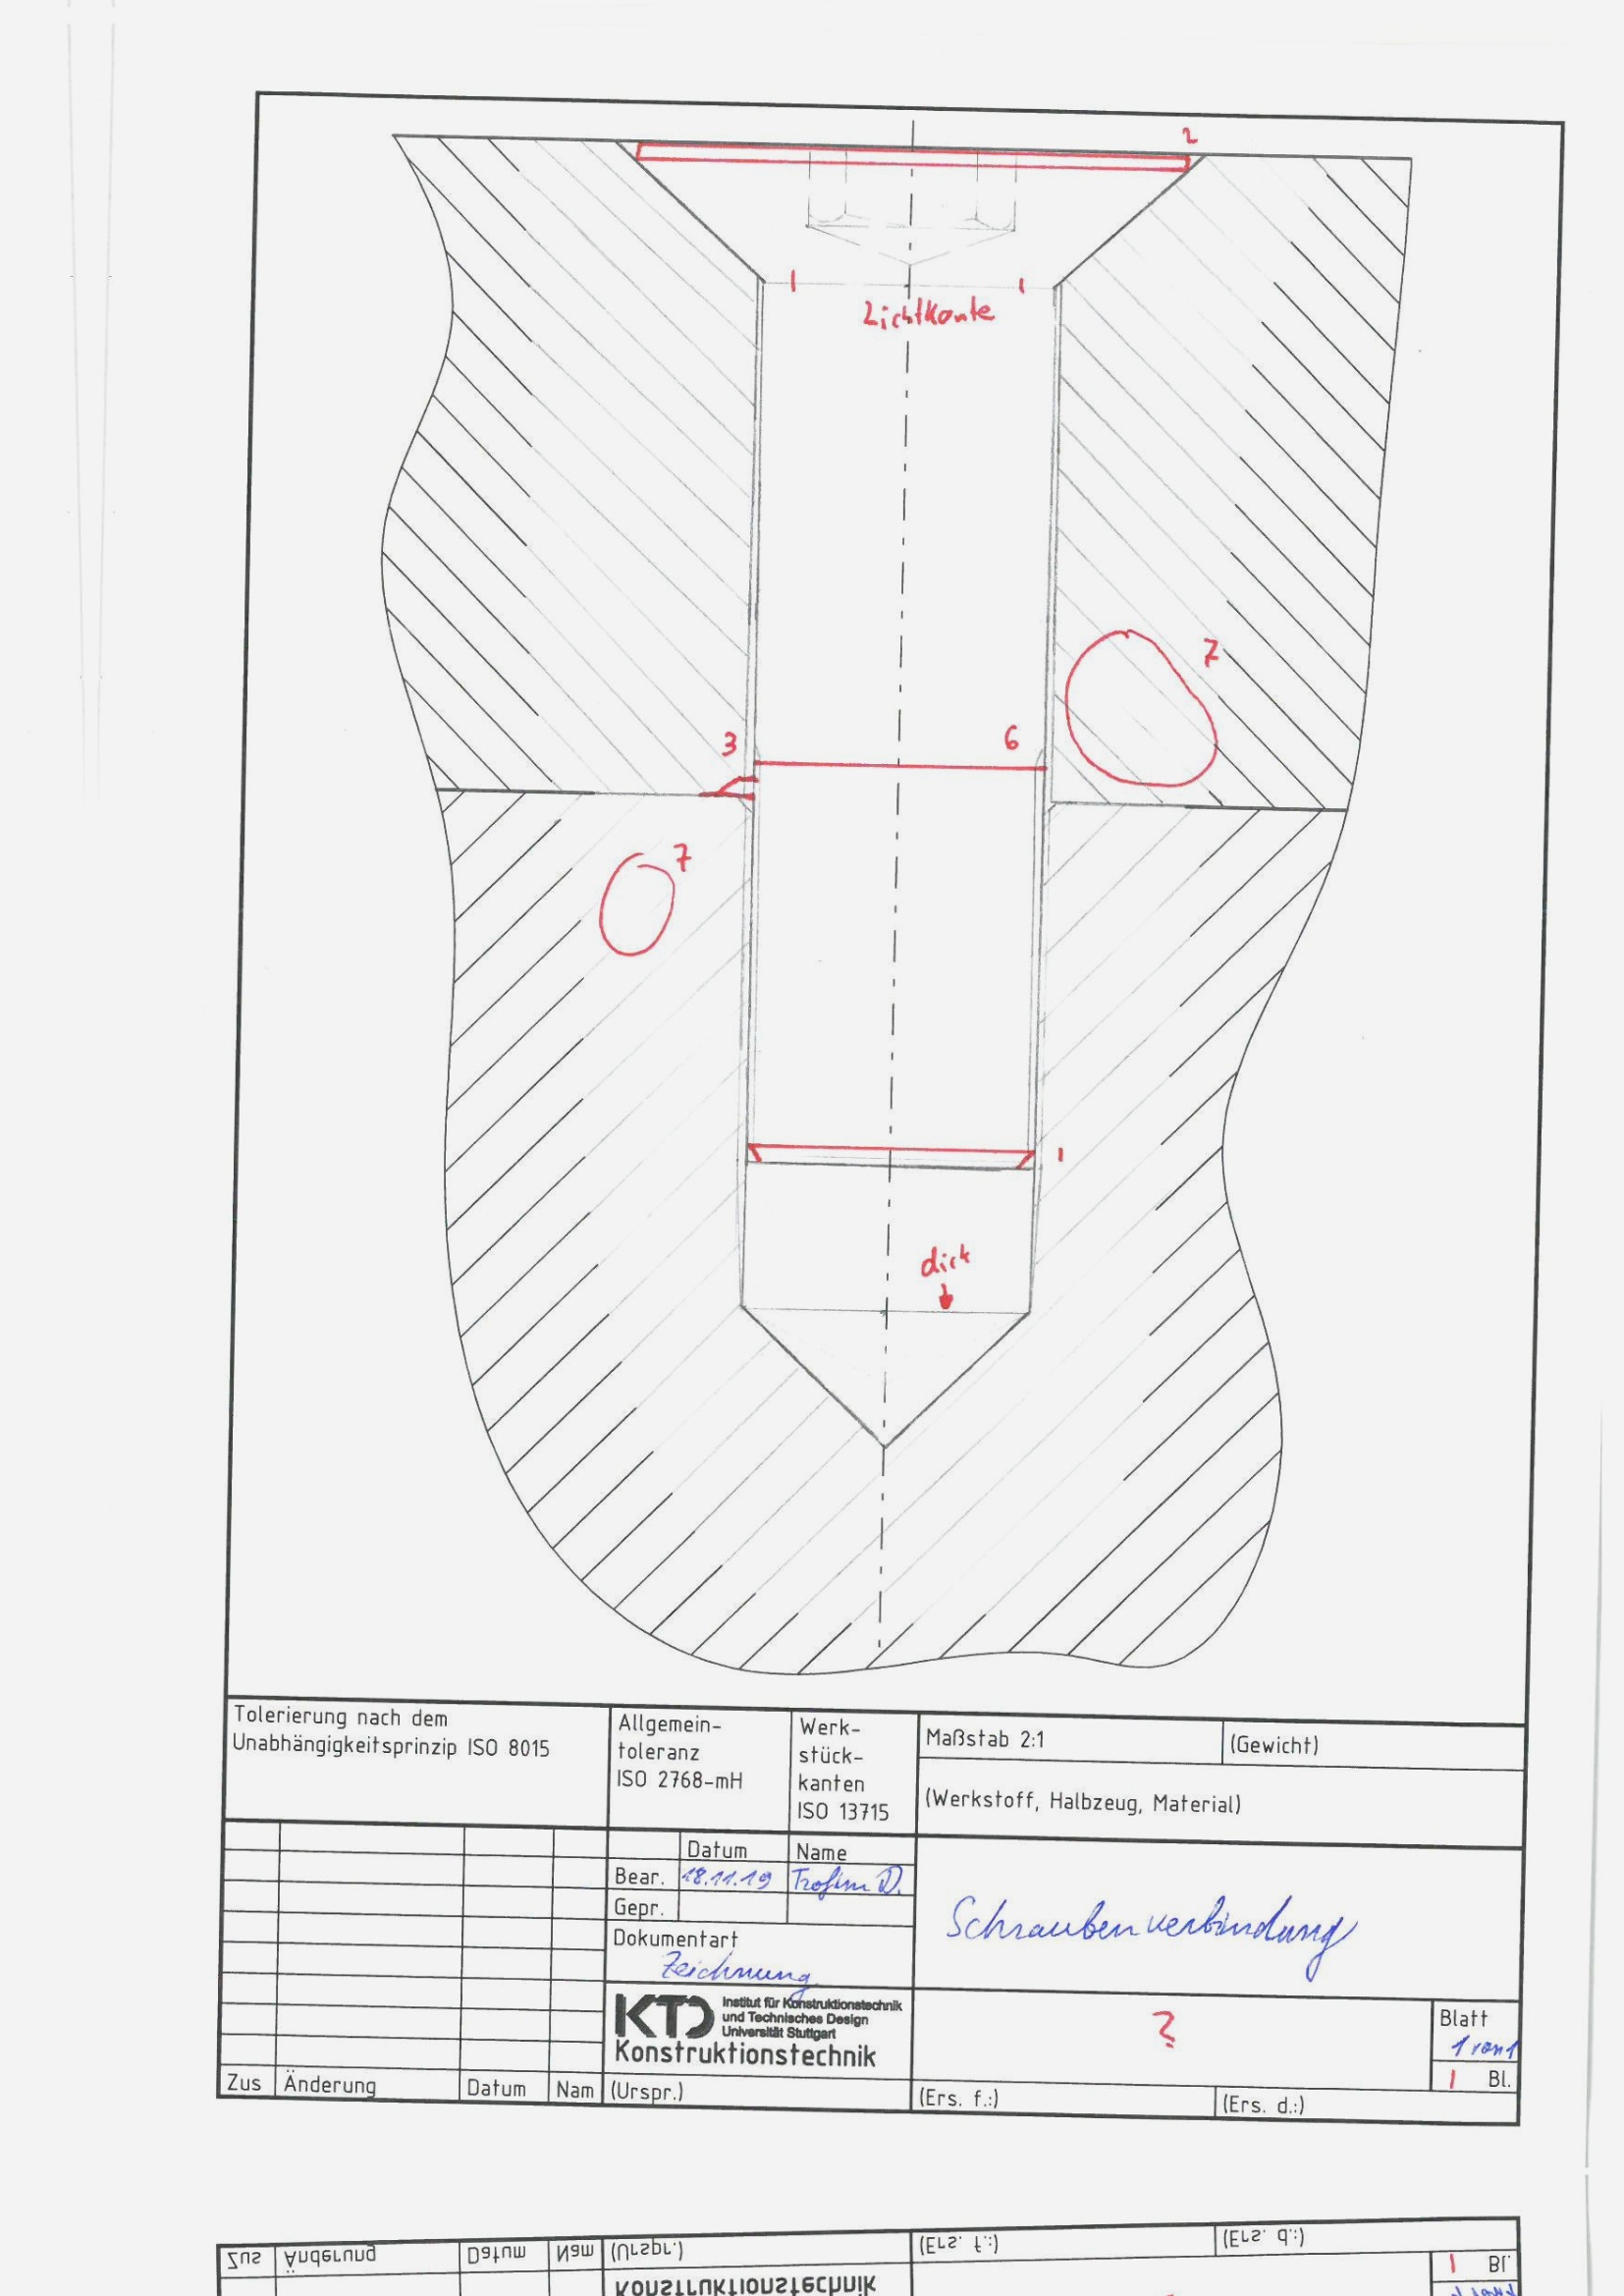 2
Lichtkante
7
3
6
7
1
dick
Tolerierung nach dem
Unabhängigkeitsprinzip ISO 8015
Allgemein-
toleranz
ISO 2768-mH
Werk-
stück-
kanten
ISO 13715
Maßstab 2:1
(Gewicht)
(Werkstoff, Halbzeug, Material)
Datum
Name
Bear.
18.11.19
Trofim D.
Gepr.
Dokumentart
Zeichnung
Schraubenverbindung
KTD
Institut für Konstruktionstechnik
und Technisches Design
Universität Stuttgart
Konstruktionstechnik
?
Blatt
1 von 1
1 Bl.
Zus
Änderung
Datum
Nam
(Urspr.)
(Ers. f.:)
(Ers. d.:)
Zus
Änderung
Datum
Nam
(Urspr.)
(Ers. f.:)
(Ers. d.:)
1 Bl.
Konstruktionstechnik